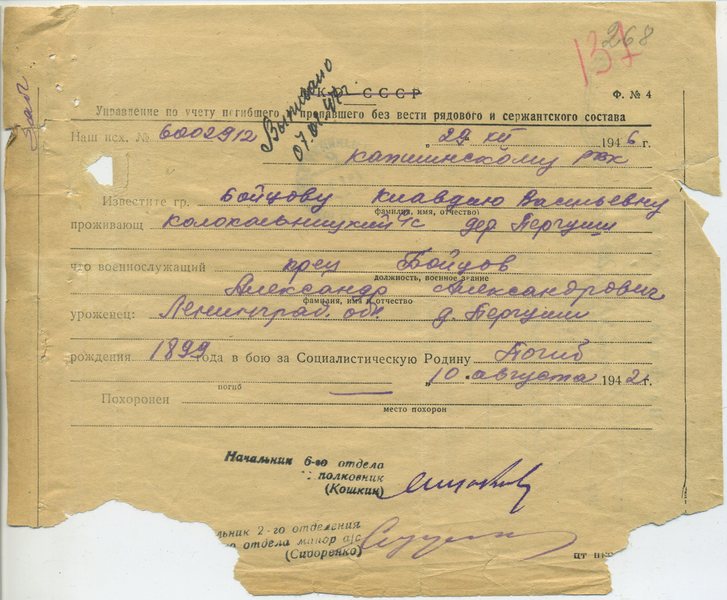 137
268
Зап
Выписано
07.01.47г.
К СССР
Ф. № 4
Управление по учету погибшего и пропавшего без вести рядового и сержантского состава
Наш исх. № 6002912 „29 XII 1946 г.
Капшинскому РВК
Известите гр. Бойцову Клавдию Васильевну
(фамилия, имя, отчество)
проживающ Колокольницкий с/с дер Пергуши
что военнослужащий кр-ец Бойцов
должность, военное звание
Александр Александрович
фамилия, имя и отчество
уроженец: Ленинград. обл. д. Пергуши
рождения 1899 года в бою за Социалистическую Родину Погиб
погиб „10 августа 1942 г.
Похоронен —
место похорон
Начальник 6-го отдела
полковник
(Кошкин)
льник 2-го отделения
го отдела майор а/с
(Сидоренко)